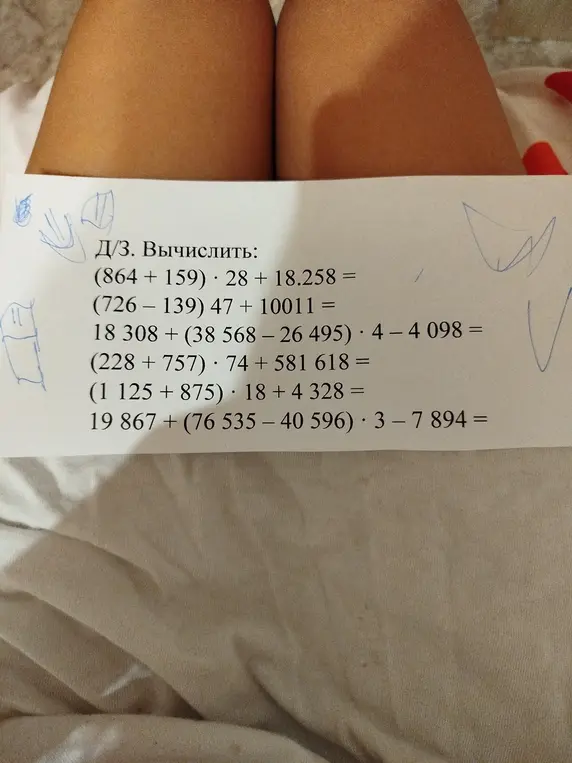 Д/З. Вычислить:
(864 + 159) · 28 + 18.258 =
(726 – 139) 47 + 10011 =
18 308 + (38 568 – 26 495) · 4 – 4 098 =
(228 + 757) · 74 + 581 618 =
(1 125 + 875) · 18 + 4 328 =
19 867 + (76 535 – 40 596) · 3 – 7 894 =